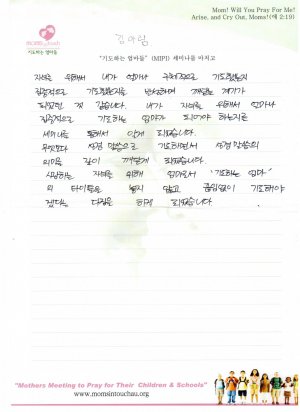 Mom! Will You Pray For Me!
Arise, and Cry Out, Moms!(애 2:19)
momsintouch
기도하는 엄마들
김아림
"기도하는 엄마들" (MIPI) 세미나를 마치고
자녀를 위해서 내가 얼마나 구체적으로 기도했는지
집중적으로 기도했는지를 반성하며 깨닫는 계기가
되었던 것 같습니다. 내가 자녀를 위해서 얼마나
집중적으로 기도하는 엄마가 되어야 하는지를
세미나를 통해서 알게 되었습니다.
무엇보다 성경 말씀으로 기도하면서 성경 말씀의
의미를 깊이 깨닫게 되었습니다.
사랑하는 자녀를 위해 엄마로서 '기도하는 엄마'
의 타이틀을 놓지 않고 끊임없이 기도해야
겠다는 다짐을 하게 되었습니다.
"Mothers Meeting to Pray for Their Children & Schools"
www.momsintouchau.org